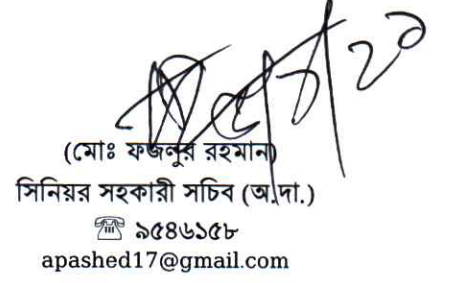 (মোঃ ফজলুর রহমান)
সিনিয়র সহকারী সচিব (অ.দা.)
☏ ৯৫৪৬১৫৮
apashed17@gmail.com